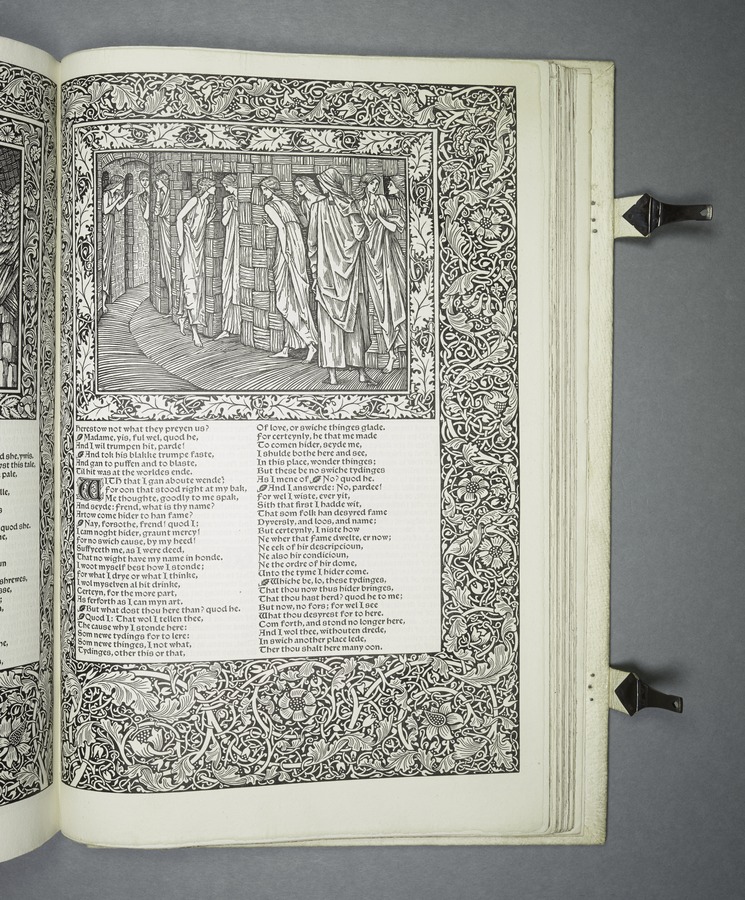 d she, ywis,
yst this tale,
pale,
lle,
s
quod she.
ne,
n
shrewes,
sse,
,
he,
,
herestow not what they preyen us?
Madame, yis, ful wel, quod he,
And I wil trumpen hit, parde!
And tok his blakke trumpe faste,
And gan to puffen and to blaste,
Til hit was at the worldes ende.
WITH that I gan aboute wende;
For oon that stood right at my bak,
Me thoughte, goodly to me spak,
And seyde: Frend, what is thy name?
Artow come hider to han fame?
Nay, forsothe, frend! quod I;
I cam noght hider, graunt mercy!
For no swich cause, by my heed!
Suffyceth me, as I were deed,
That no wight have my name in honde.
I woot myself best how I stonde;
For what I drye or what I thinke,
I wol myselven al hit drinke,
Certeyn, for the more part,
As ferforth as I can myn art.
But what dost thou here than? quod he.
Quod I: That wol I tellen thee,
The cause why I stonde here:
Som newe tydings for to lere:
Som newe thinges, I not what,
Tydinges, other this or that,
Of love, or swiche thinges glade.
For certeynly, he that me made
To comen hider, seyde me,
I shulde bothe here and see,
In this place, wonder thinges;
But these be no swiche tydinges
As I mene of. No? quod he.
And I answerde: No, pardee!
For wel I wiste, ever yit,
Sith that first I hadde wit,
That som folk han desyred fame
Dyversly, and loos, and name;
But certeynly, I niste how
Ne wher that Fame dwelte, er now;
Ne eek of hir descripcioun,
Ne also hir condicioun,
Ne the ordre of hir dome,
Unto the tyme I hider come.
Whiche be, lo, these tydinges,
That thou now thus hider bringes,
That thou hast herd? quod he to me;
But now, no fors; for wel I see
What thou desyrest for to here.
Com forth, and stond no longer here,
And I wol thee, withouten drede,
In swich another place lede,
Ther thou shalt here many oon.